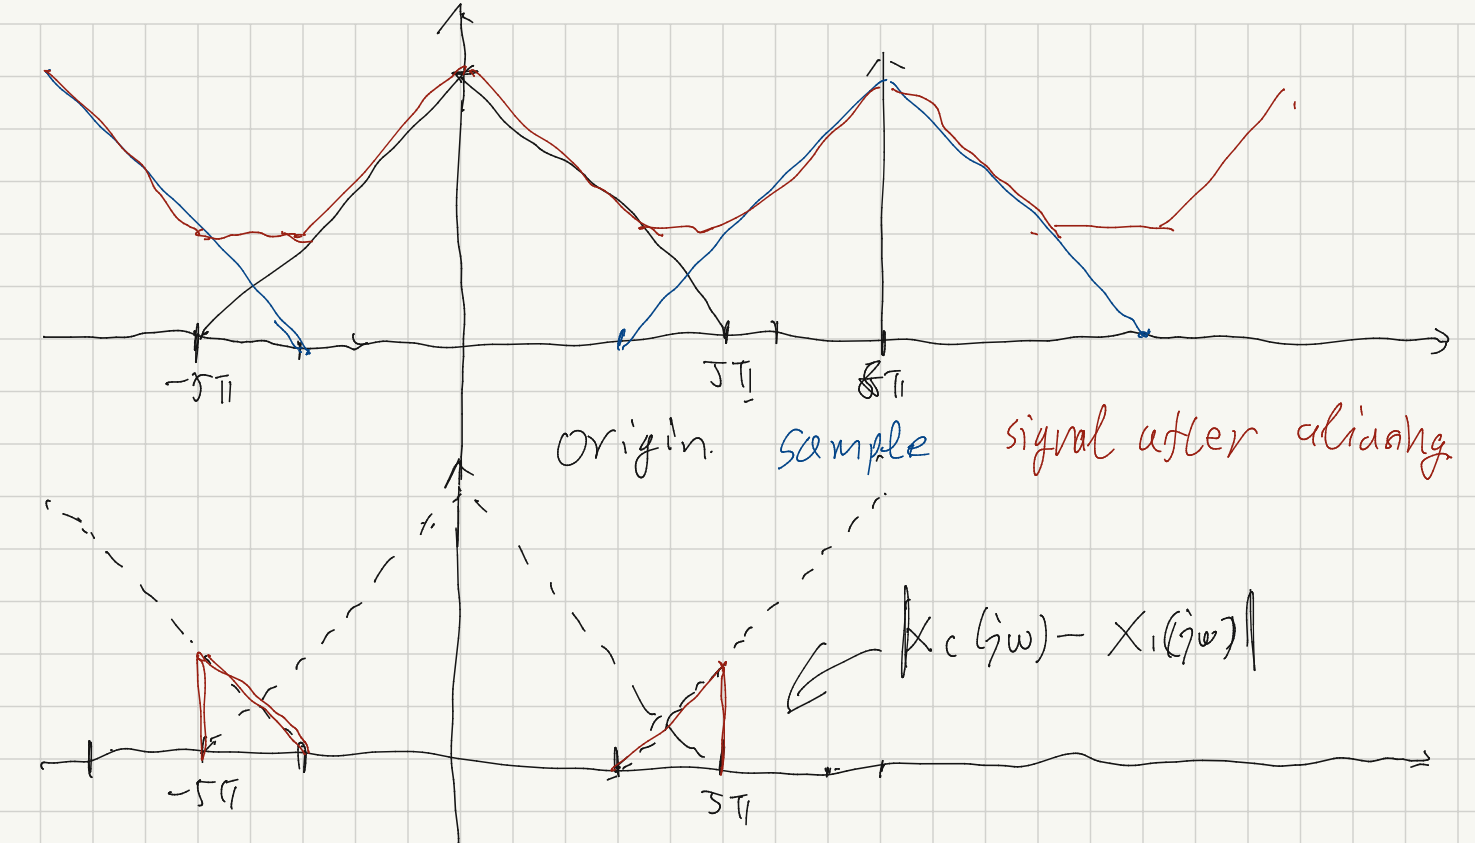 -5π 5π 8π
origin. sample signal after aliasing
|Xc(jω) - X1(jω)|
-5π 5π